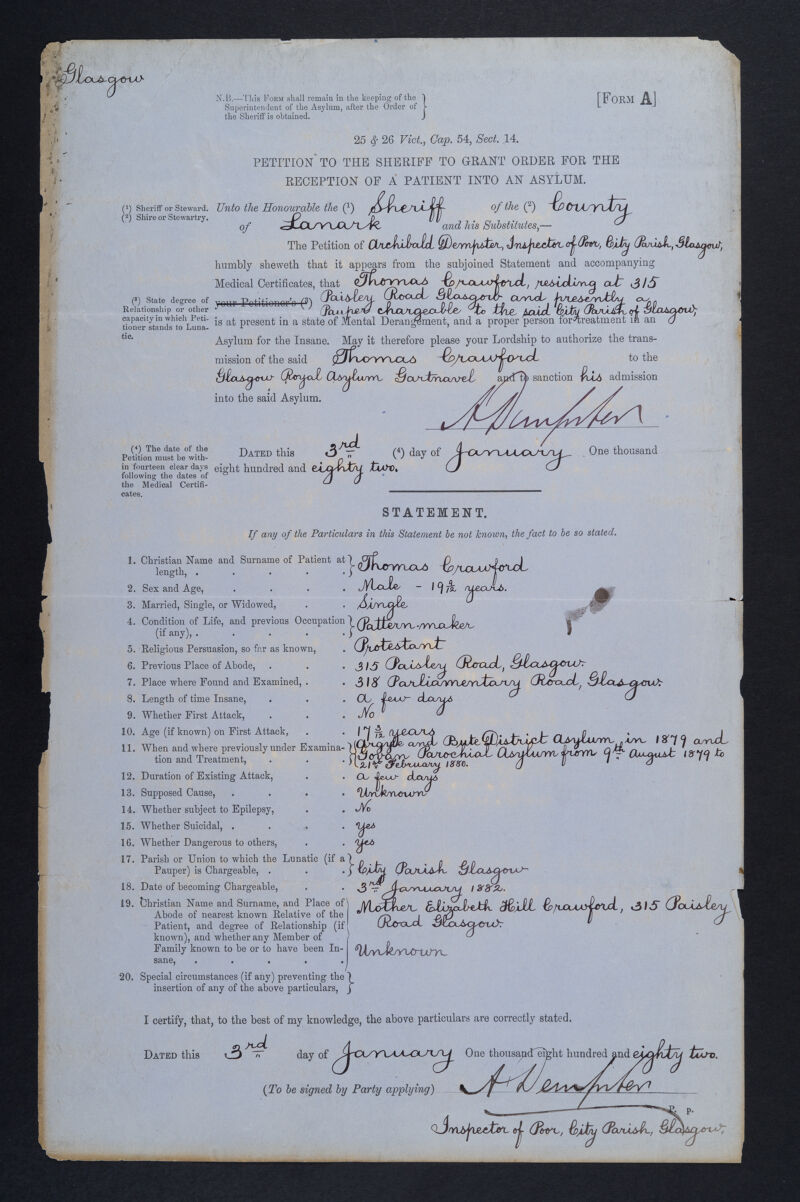 Glasgow
N.B.—This Form shall remain in the keeping of the
Superintendent of the Asylum, after the Order of
the Sheriff is obtained.
[Form A]
25 & 26 Vict., Cap. 54, Sect. 14.
PETITION TO THE SHERIFF TO GRANT ORDER FOR THE
RECEPTION OF A PATIENT INTO AN ASYLUM.
(1) Sheriff or Steward.
(2) Shire or Stewartry.
Unto the Honourable the (1) Sheriff of the (2) County
of Lanark and his Substitutes,—
The Petition of Archibald Dempster, Inspector of Poor, City Parish, Glasgow,
humbly sheweth that it appears from the subjoined Statement and accompanying
Medical Certificates, that Thomas Crawford, residing at 315
(3) State degree of
Relationship or other
capacity in which Peti-
tioner stands to Luna-
tic.
your Petitioner's (3) Paisley Road Glasgow and presently a
Pauper chargeable to the said City Parish of Glasgow,
is at present in a state of Mental Derangement, and a proper person for treatment in an
Asylum for the Insane. May it therefore please your Lordship to authorize the trans-
mission of the said Thomas Crawford to the
Glasgow Royal Asylum Gartnavel and to sanction his admission
into the said Asylum.
A Dempster
(4) The date of the
Petition must be with-
in fourteen clear days
following the dates of
the Medical Certifi-
cates.
Dated this 3rd (4) day of January One thousand
eight hundred and eighty two.
STATEMENT.
If any of the Particulars in this Statement be not known, the fact to be so stated.
1. Christian Name and Surname of Patient at
length, . . . . . Thomas Crawford
2. Sex and Age, . . . . Male - 19 9/12 years.
3. Married, Single, or Widowed, . . Single
4. Condition of Life, and previous Occupation
(if any), . . . . . Pattern-maker
5. Religious Persuasion, so far as known, . Protestant
6. Previous Place of Abode, . . . 315 Paisley Road, Glasgow.
7. Place where Found and Examined, . . 318 Parliamentary Road, Glasgow.
8. Length of time Insane, . . . A few days
9. Whether First Attack, . . . No
10. Age (if known) on First Attack, . . 17 years
11. When and where previously under Examina-
tion and Treatment, . . . Argyle and Bute District Asylum, in 1879 and
Govan Parochial Asylum from 9th August 1879 to
21st February 1880.
12. Duration of Existing Attack, . . a few days
13. Supposed Cause, . . . . Unknown
14. Whether subject to Epilepsy, . . No
15. Whether Suicidal, . . . . Yes
16. Whether Dangerous to others, . . Yes
17. Parish or Union to which the Lunatic (if a
Pauper) is Chargeable, . . . City Parish Glasgow
18. Date of becoming Chargeable, . . 3rd January 1882.
19. Christian Name and Surname, and Place of
Abode of nearest known Relative of the
Patient, and degree of Relationship (if
known), and whether any Member of
Family known to be or to have been In-
sane, . . . . .
Mother Elizabeth Hill Crawford, 315 Paisley
Road Glasgow.
Unknown
20. Special circumstances (if any) preventing the
insertion of any of the above particulars,
I certify, that, to the best of my knowledge, the above particulars are correctly stated.
Dated this 3rd day of January One thousand eight hundred and eighty two.
(To be signed by Party applying) A Dempster
P. P.
Inspector of Poor, City Parish, Glasgow.